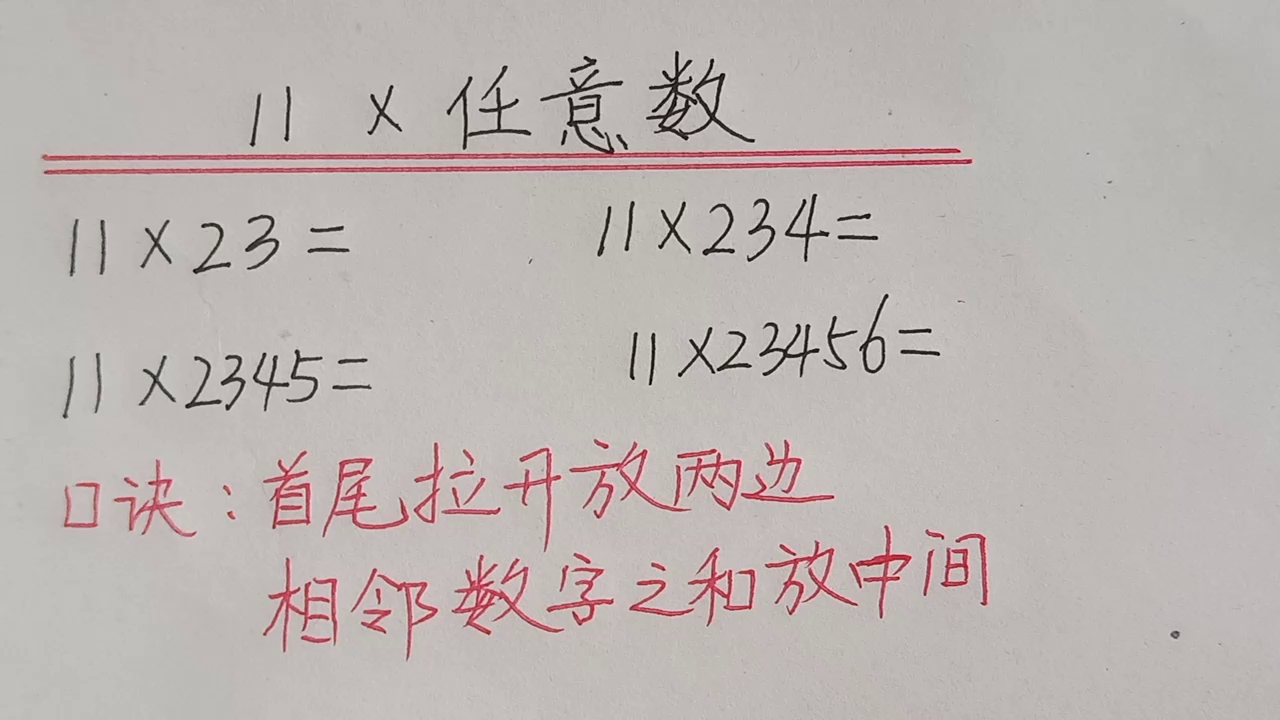 11 × 任意数
11×23= 11×234=
11×2345= 11×23456=
口诀：首尾拉开放两边
相邻数字之和放中间